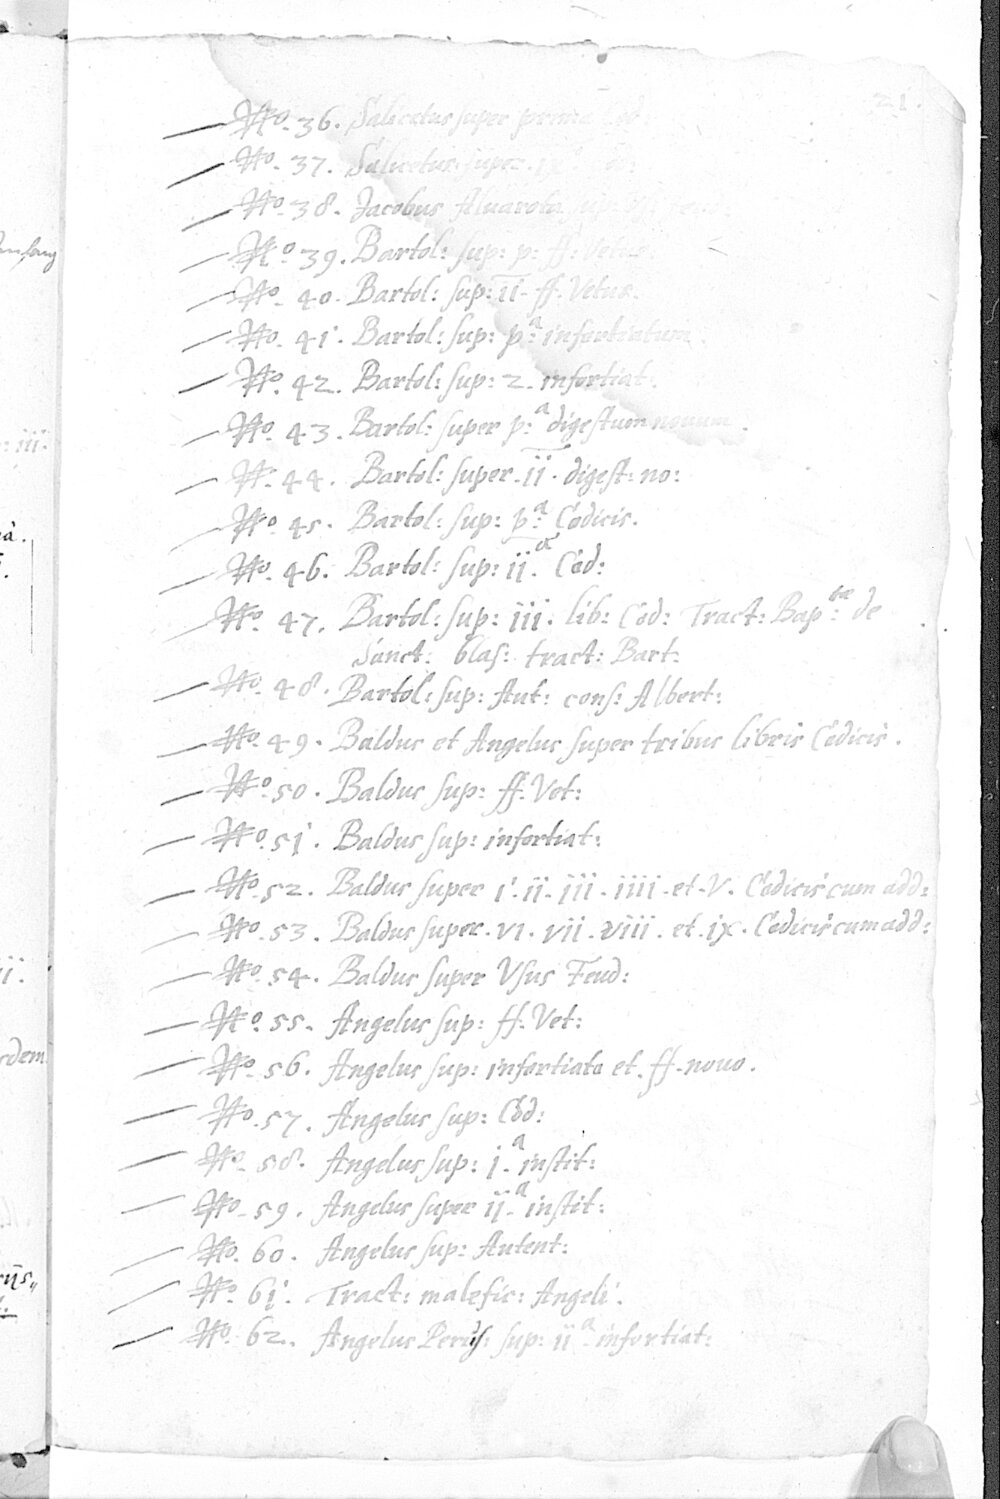 21.
No. 36. Salicetus super prima Cod:
No. 37. Salicetus super.
No. 38. Jacobus Aluarota sup:
No. 39. Bartol: sup: p: ff: Vetus.
No. 40. Bartol: sup: ii ff. Vetus.
No. 41. Bartol: sup: p:ª infortiatum.
No. 42. Bartol: sup: 2. infortiat:
No. 43. Bartol: super p:ª digestum nouum.
No. 44. Bartol: super. ii. digest: no:
No. 45. Bartol: sup: p:ª Codicis.
No. 46. Bartol: sup: ii.ª Cod:
No. 47. Bartol: sup: iii. lib: Cod: Tract: Bap:tæ de
Sanct: blas: tract: Bart:
No. 48. Bartol: sup: Aut: cons: Albert:
No. 49. Baldus et Angelus super tribus libris Codicis.
No. 50. Baldus sup: ff. Vet:
No. 51. Baldus sup: infortiat:
No. 52. Baldus super i. ii. iii. iiii. et. V. Codicis cum add:
No. 53. Baldus super. vi. vii. viii. et. ix. Codicis cum add:
No. 54. Baldus super Vsus Feud:
No. 55. Angelus sup: ff. Vet:
No. 56. Angelus sup: infortiato et. ff. nouo.
No. 57. Angelus sup: Cod:
No. 58. Angelus sup: i.ª instit:
No. 59. Angelus super ii.ª instit:
No. 60. Angelus sup: Autent:
No. 61. Tract: malefic: Angeli.
No. 62. Angelus Perus: sup: ii.ª infortiat: